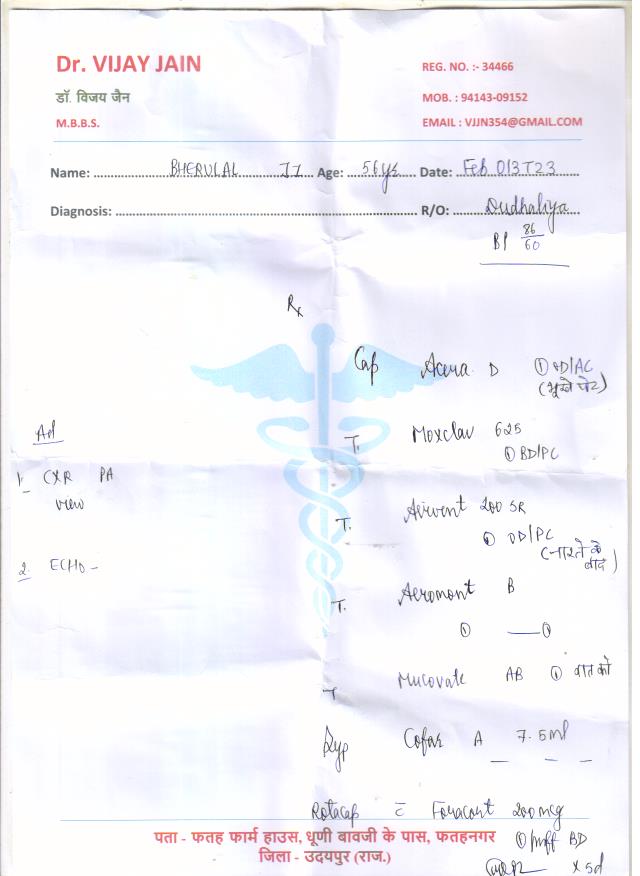 Dr. VIJAY JAIN
डॉ. विजय जैन
M.B.B.S.
REG. NO. :- 34466
MOB. : 94143-09152
EMAIL : VJJN354@GMAIL.COM
Name: BHERULAL JI Age: 56yr Date: Feb 013T23
Diagnosis: R/O: Dudhaliya
BP 86/60
Rx
Cap Acera D ① OD/AC
(भूखे पेट)
Ad
T. Moxclav 625
① BD/PC
1. CXR PA
view
T. Airvent 200 SR
① OD/PC
(नाश्ते के
बाद)
2. ECHO -
T. Aeromont B
① — ①
T Mucovate AB ① रात को
Syp Cofas A 7.5ml
— — —
Rotacap c̄ Foracort 200mcg
① puff BD
x 5d
पता - फतह फार्म हाउस, धूणी बावजी के पास, फतहनगर
जिला - उदयपुर (राज.)